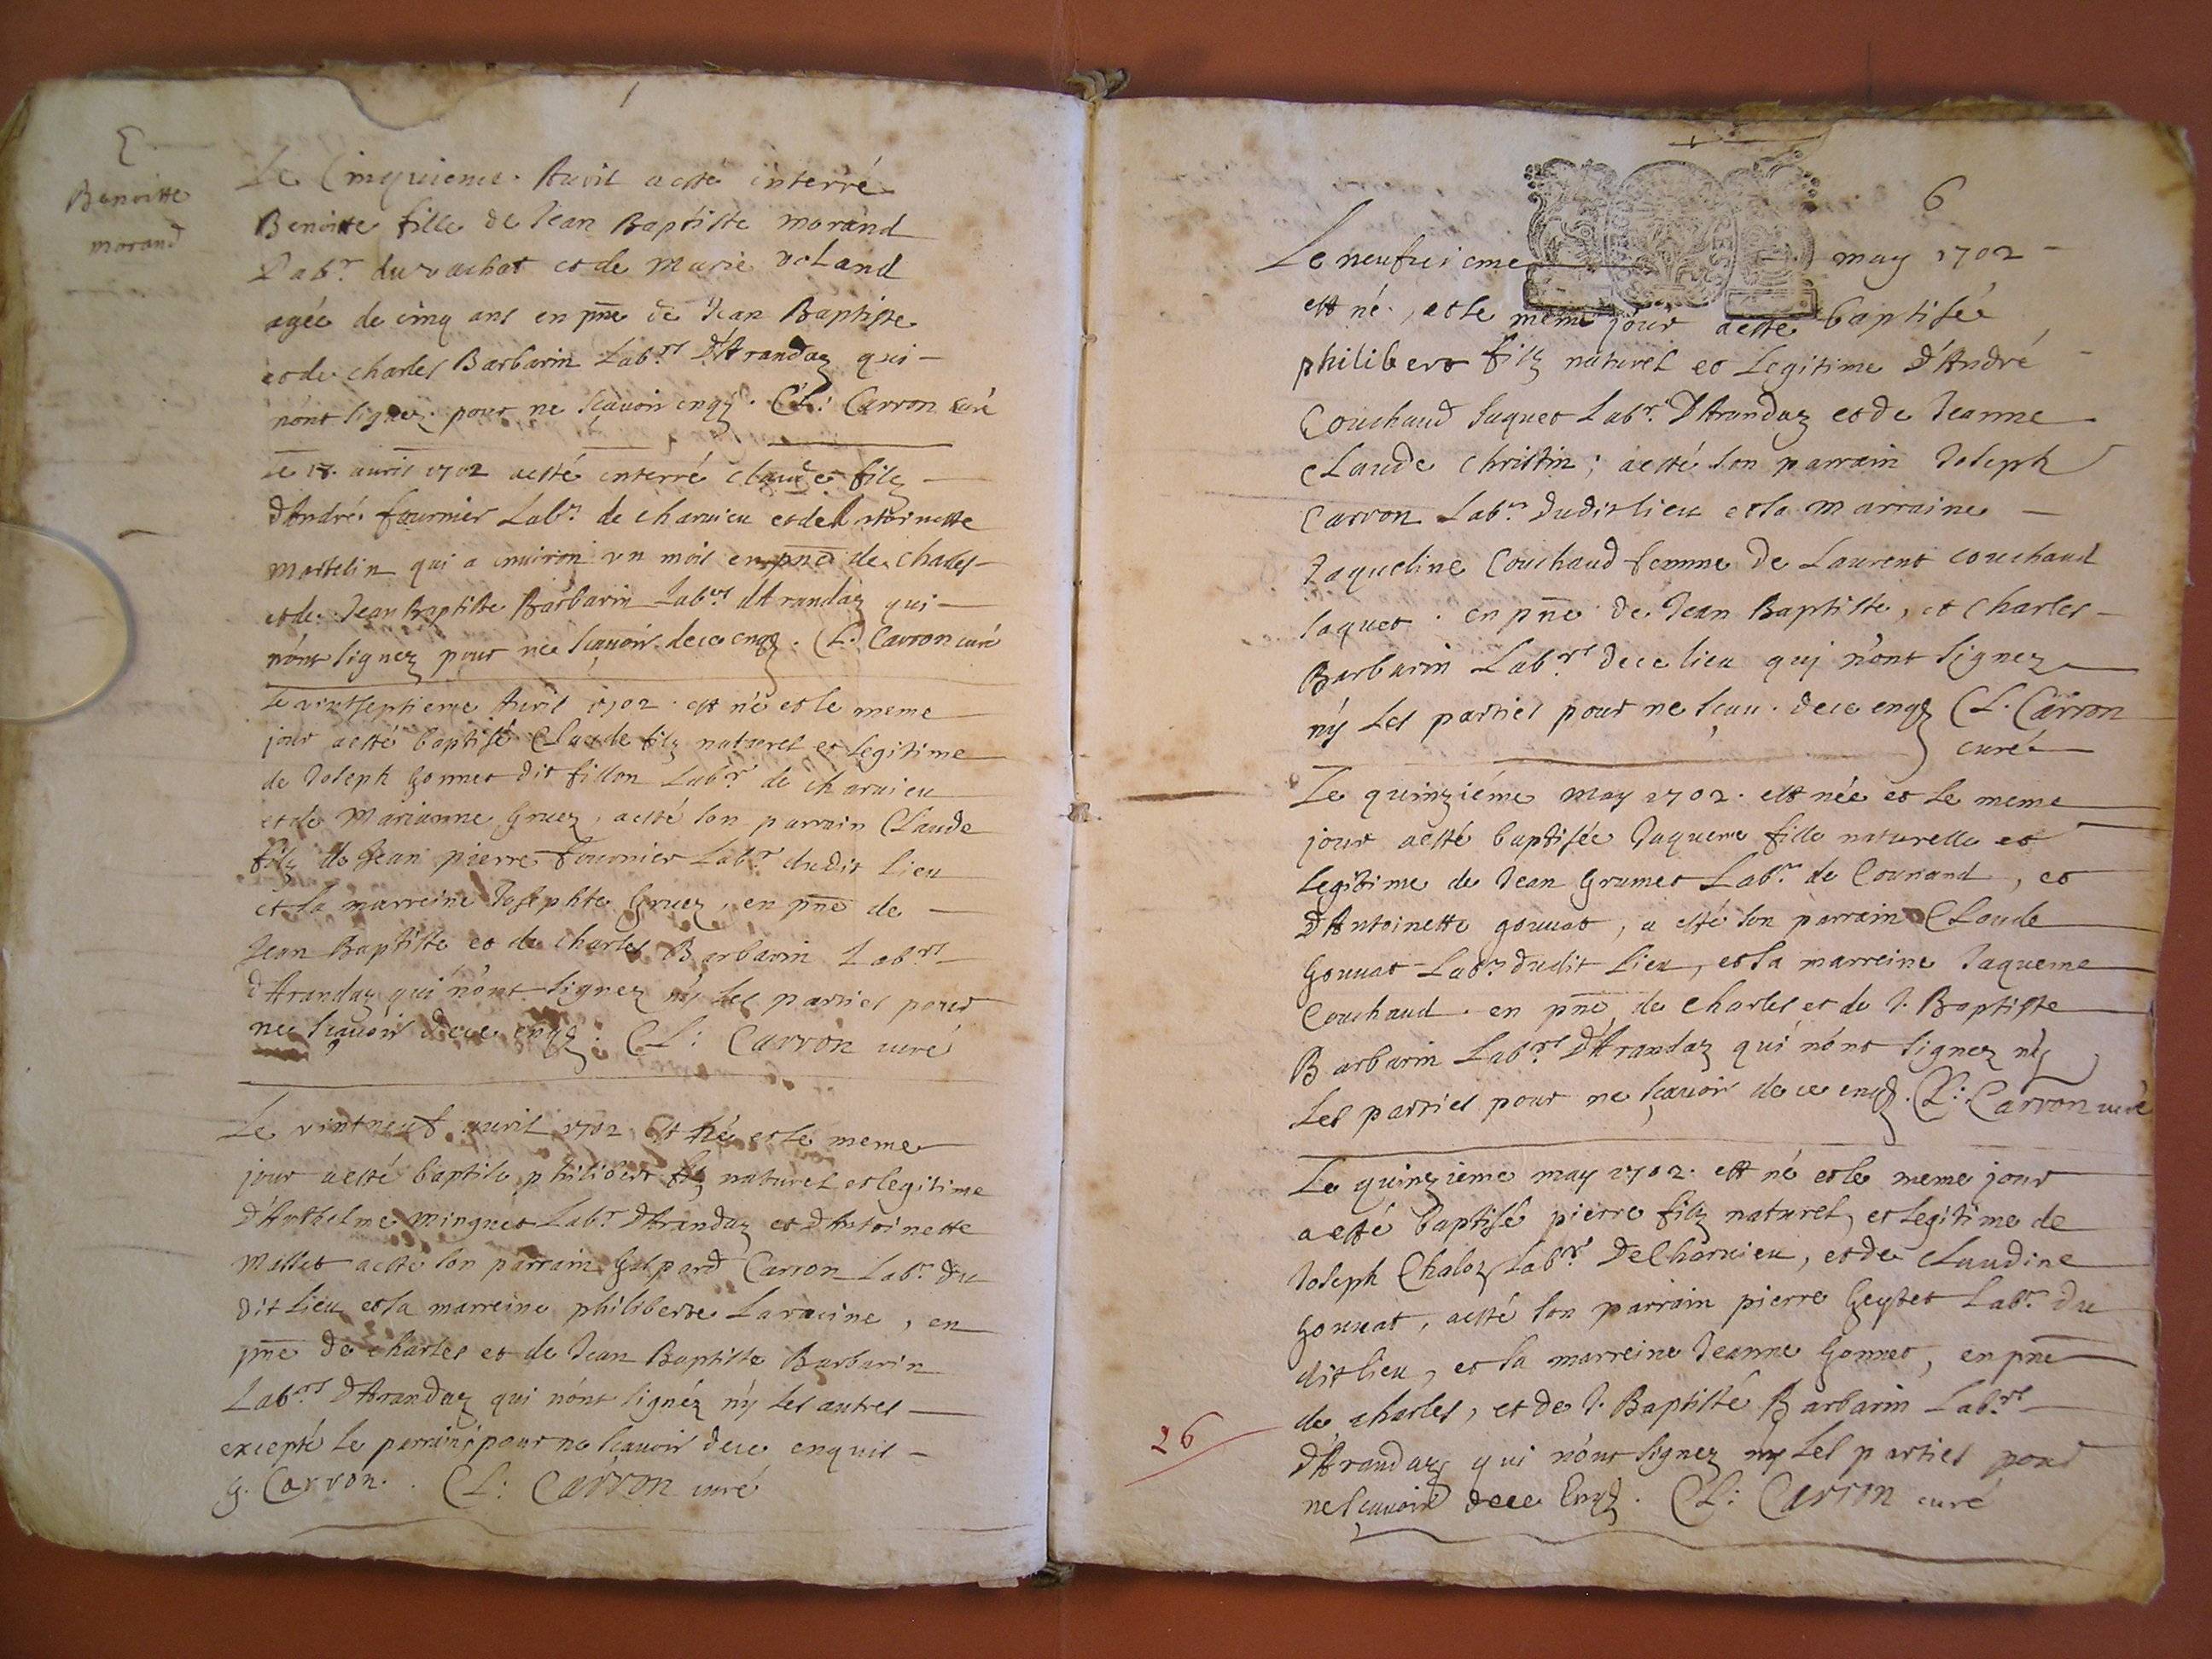 Benoitte
morand
Le Cinquieme Auril a esté enterré
Benoitte fille de Jean Baptiste morand
Labr. du vachat et de Marie voland
agée de cinq ans en pñe de Jean Baptiste
et de charles Barbarin Labrs d'Arandaz qui
n'ont signez pour ne sçauoir enqz. Cl: Carron curé
Le 17. auril 1702 a esté enterré claude filz
d'André fournier Labr. de charuieu et de Antoinette
Martelin qui a enuiron vn mois en pñe de charles
et de Jean Baptiste Barbarin Labrs d'Arandaz qui
n'ont signez pour ne sçauoir de ce enqz. Cl. Carron curé
Le vintseptieme Auril 1702 est né et le meme
jour a esté baptisé Claude filz naturel et legitime
de Joseph Gonnet dit fillon Labr. de charuieu
et de Marianne Gruez, a esté son parrain Claude
filz de Jean pierre fournier Labr. dudit lieu
et la marreine Josephte Gruez, en pñe de
Jean Baptiste et de charles Barbarin Labrs
d'Arandaz qui n'ont signez ny les parties pour
ne sçauoir de ce enqz: Cl: Carron curé
Le vintneuf auril 1702, est né et le meme
jour a esté baptisé philibert filz naturel et legitime
d'Anthelme Minguet Labr. d'Arandaz et d'Antoinette
Mallet a esté son parrain Gaspard Carron Labr. du
dit lieu et la marreine philiberte Laracine, en
pñe de charles et de Jean Baptiste Barbarin
Labrs d'Arandaz qui n'ont signéz ny les autres
excepté le parrain pour ne sçauoir de ce enquis
G. Carron. Cl: Carron curé
6
Le neufuieme may 1702
est né, et le meme jour a esté baptisé
philibert filz naturel et Legitime d'André
Couchaud Jaquet Labr. d'Arandaz et de Jeanne
Claude Christin; a esté son parrain Joseph
Carron Labr. dudit lieu et la marraine
Jaqueline Couchaud femme de Laurent couchaud
Jaquet. en pñe de Jean Baptiste, et charles
Barbarin Labrs de ce lieu qui n'ont signez
ny les parties pour ne sçau. de ce enqz Cl. Carron
curé
Le quinziéme may 1702. est née et le meme
jour a esté baptisée Jaqueme fille naturelle et
legitime de Jean Grumet Labr. de Courand, et
d'Antoinette gouuat, a esté son parrain Claude
Gouuat Labr. dudit lieu, et la marreine Jaqueme
Couchaud. en pñe de charles et de J. Baptiste
Barbarin Labrs d'Arandaz qui n'ont signez ny
les parties pour ne sçauoir de ce enqz. Cl: Carron curé
Le quinzieme may 1702. est né et le meme jour
a esté baptisé pierre filz naturel et legitime de
Joseph Chaloz Labr. de Charuieu, et de claudine
Gouuat, a esté son parrain pierre Labr. du
dit lieu, et la marreine Jeanne Gonnet, en pñe
de charles, et de J. Baptiste Barbarin Labrs
d'Arandaz qui n'ont signez ny les parties pour
ne sçauoir de ce Enqz. Cl: Carron curé
26